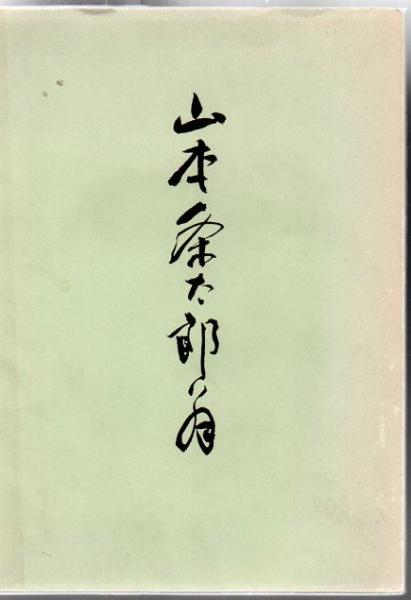 山本条太郎翁